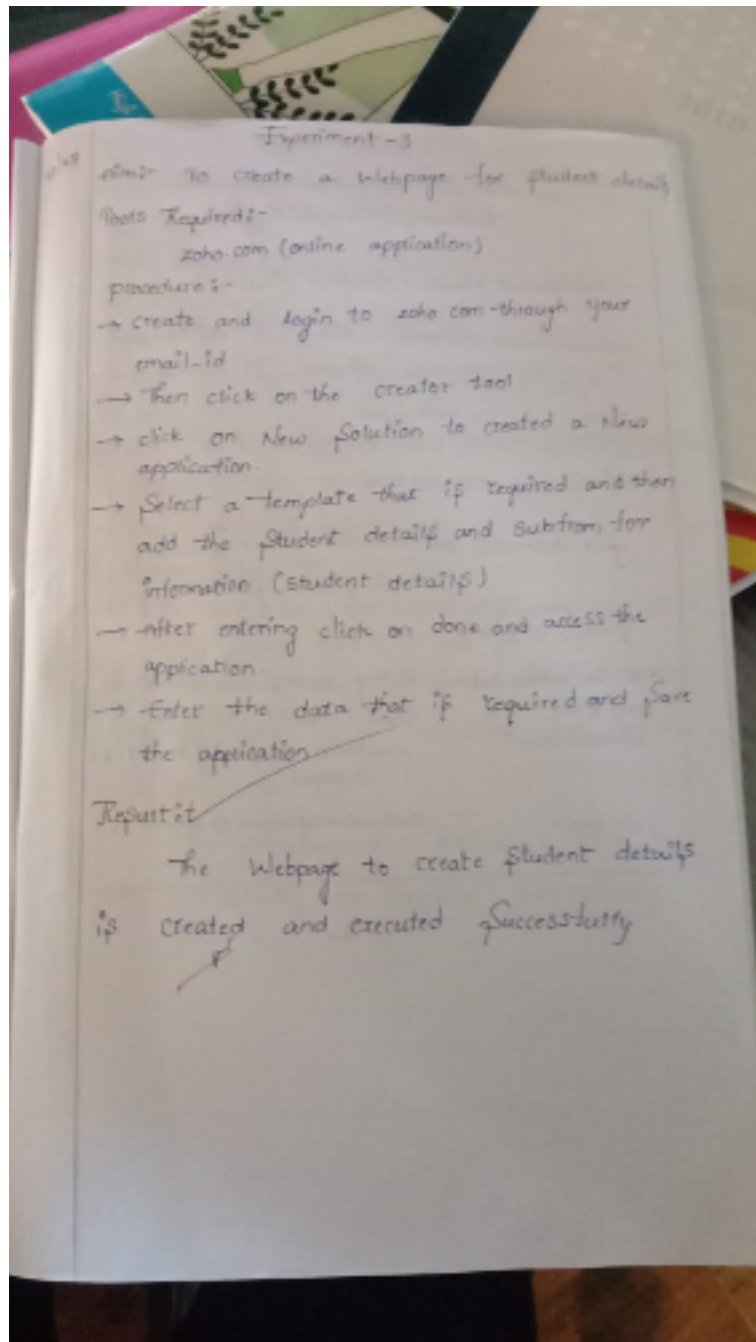 Experiment - 3
Aim:- To create a Webpage for Student details
Tools Required:-
zoho.com (online application)
procedure:-
→ create and login to zoho com through your
email-id
→ Then click on the creator tool
→ click on New Solution to created a New
application.
→ Select a template that is required and then
add the Student details and Subfrom for
information. (student details)
→ After entering click on done and access the
application.
→ Enter the data that is required and Save
the application
Result:
The Webpage to create Student details
is created and executed Successfully